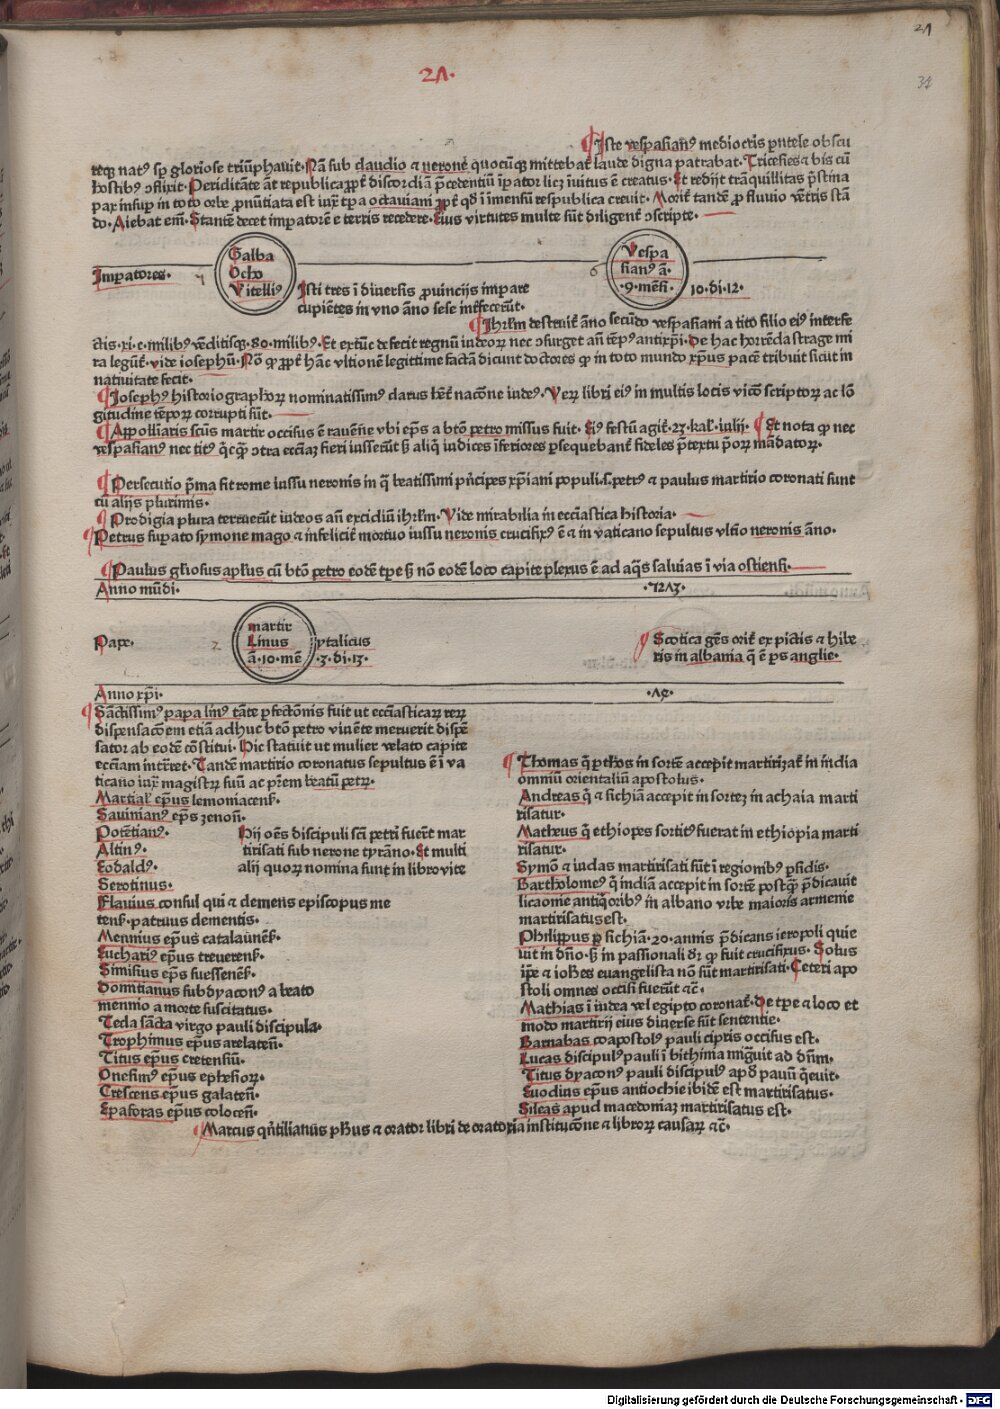 21
34
21.
Iste vespasianꝰ mediocris pntele obscu
reqꝫ natꝰ sꝑ gloriose triũphauit. Nã sub claudio ⁊ neronē quocũqꝫ mittebat᷑ laude digna patrabat. Tricesies ⁊ bis cũ
hostibꝰ ↄflixit. Periditãte ãt republica ꝓpt᷑ discordiã p̃cedentiũ ĩperator licꝫ ĩuitus ẽ creatus. Et redijt trãquillitas p̃stina
pax insuꝑ in toto orbe ꝓnũtiata est iux̃ tꝑa octauiani ꝓpt᷑ qđ ĩ imensũ respublica creuit. Morit᷑ tandẽ ꝓ fluuio vẽtris stã
do. Aiebat em̃. Stantẽ decet imperatorẽ e terris recedere. Eius virtutes multe sũt diligent᷑ ↄscripte.
Galba
Otho
Vitelliꝰ
Imꝑatores.
Vespa
sianꝰ ã.
.9. mẽsi.
6
10. di. 12.
Isti tres ĩ diuersis ꝓuincijs imꝑare
cupiẽtes in vno ãno sese int᷑fecerũt.
Ihrl̃m destruit᷑ ãno secũdo vespasiani a tito filio eiꝰ interfe
ctis. xi. c. milibꝰ vẽditisqꝫ. 80. milibꝰ. Et ex tũc defecit regnũ iudeoꝝ nec ↄsurget añ tẽpꝰ antixp̃i. De hac horrẽda strage mi
ra legũt᷑. vide iosephũ. Nõ ꝙ ꝓpt᷑ hãc vltionẽ legittime factã dicunt doctores ꝙ in toto mundo xp̃us pacẽ tribuit sicut in
natiuitate fecit.
Iosephꝰ historiographoꝝ nominatissimꝰ clarus het᷑ nacõne iudeꝰ. Veꝝ libri eiꝰ in multis locis vicõ scriptoꝝ ac lõ
gitudine tẽpoꝝ corrupti sũt.
Appolliaris scũs martir occisus ẽ rauẽne vbi ep̃s a btõ petro missus fuit. Eiꝰ festũ agit᷑. 23. kal. iulij. Et nota ꝙ nec
vespasianꝰ nec titꝰ q̃cqꝫ ↄtra eccliãꝫ fieri iusserũt sꝫ aliq̃ iudices ĩferiores ꝑsequebant᷑ fideles p̃textu p̃oꝝ mãdatoꝝ.
Persecutio p̃ma fit rome iussu neronis in q̃ beatissimi p̃ncipes xp̃iani populi. s. petrꝰ ⁊ paulus martirio coronati sunt
cũ alijs plurimis.
Prodigia plura terruerũt iudeos añ excidiũ ihrl̃m. Vide mirabilia in eccl̃iastica historia.
Petrus supato symone mago ⁊ infelicit᷑ mortuo iussu neronis crucifixꝰ ẽ ⁊ in vaticano sepultus vltĩo neronis ãno.
Paulus gl̃iosus apl̃us cũ btõ petro eodẽ tꝑe sꝫ nõ eodẽ loco capite plexus ẽ ad aq̃s saluias ĩ via ostiensi.
Anno mũdi.
.7273.
martir
Linus
ã. 10. mẽ
Pape.
2
ytalicus
.3. di. 13.
Scotica gẽs orit᷑ ex pictis ⁊ hibe
ris in albania q̃ ẽ ꝑs anglie.
Anno xp̃i.
.74.
Sãctissimꝰ papa linꝰ tãte ꝑfectõnis fuit ut eccl̃iasticaꝝ reꝝ
dispensacõem etiã adhuc btõ petro viuẽte meruerit dispẽ
sator ab eodẽ cõstitui. Hic statuit ut mulier velato capite
eccl̃iam intrẽret. Tandẽ martirio coronatus sepultus ẽ ĩ va
ticano iux̃ magistꝝ suũ ac p̃rem beatũ petꝝ.
Martial᷑ ep̃us lemoniacen̄.
Sauinianꝰ ep̃s zenoñ.
Potẽtianꝰ.
Altinꝰ.
Eobaldꝰ.
Serotinus.
Hij oẽs discipuli scĩ petri fuert᷑ mar
tirisati sub nerone tyrãno. Et multi
alij quoꝝ nomina sunt in libro vite
Flauius consul qui ⁊ clemens episcopus me
tenẽ. patruus clementis.
Mennius ep̃us catalaũnen̄.
Euchariꝰ ep̃us treueren̄.
Simisius ep̃s suessenen̄.
Domitianus subdyaconꝰ a beato
mennio a morte suscitatus.
Tecla sãcta virgo pauli discipula.
Trophimus ep̃us arelateñ.
Titus ep̃us cretensiũ.
Onesimꝰ ep̃us ephesioꝝ.
Crescens ep̃us galateñ.
Epafras ep̃us coloceñ.
Thomas q̃ pthos in sortẽ accepit martirizat᷑ in india
omniũ orientaliũ apostolus.
Andreas q̃ ⁊ sichiã accepit in sorteꝫ in achaia marti
risatur.
Matheus q̃ ethiopes sortitꝰ fuerat in ethiopia marti
risatur.
Symõ ⁊ iudas martirisati sũt ĩ regionibꝰ ꝑsidis.
Bartholomeꝰ q̃ indiã accepit in sortẽ postq̃ꝫ p̃dicauit
licaonie antiq̃oribꝰ in albano vrbe maioris armenie
martirisatus est.
Philippus ꝑ sichiã. 20. annis p̃dicans ieropoli quie
uit in dño. sꝫ in passionali dr̃ ꝙ fuit crucifixus. Solus
ip̃e ⁊ iohẽs euangelista nõ sũt martirisati. Ceteri apo
stoli omnes occisi fuerũt ⁊c̃.
Mathias ĩ iudea vel egipto coronat᷑. De tꝑe ⁊ loco et
modo martirij eius diuerse sũt sententie.
Barnabas coapostolꝰ pauli cipris occisus est.
Lucas discipulꝰ pauli ĩ bithinia mig̃uit ad dñm.
Titus dyaconꝰ pauli discipulꝰ apđ pauũ q̃euit.
Euodius ep̃us antiochie ibidẽ est martirisatus.
Sileas apud macedoniaꝫ martirisatus est.
Marcus qñtilianus ph̃us ⁊ orator libri de oratoria institucõne ⁊ libroꝝ causaꝝ ⁊c̃.
Digitalisierung gefördert durch die Deutsche Forschungsgemeinschaft - DFG